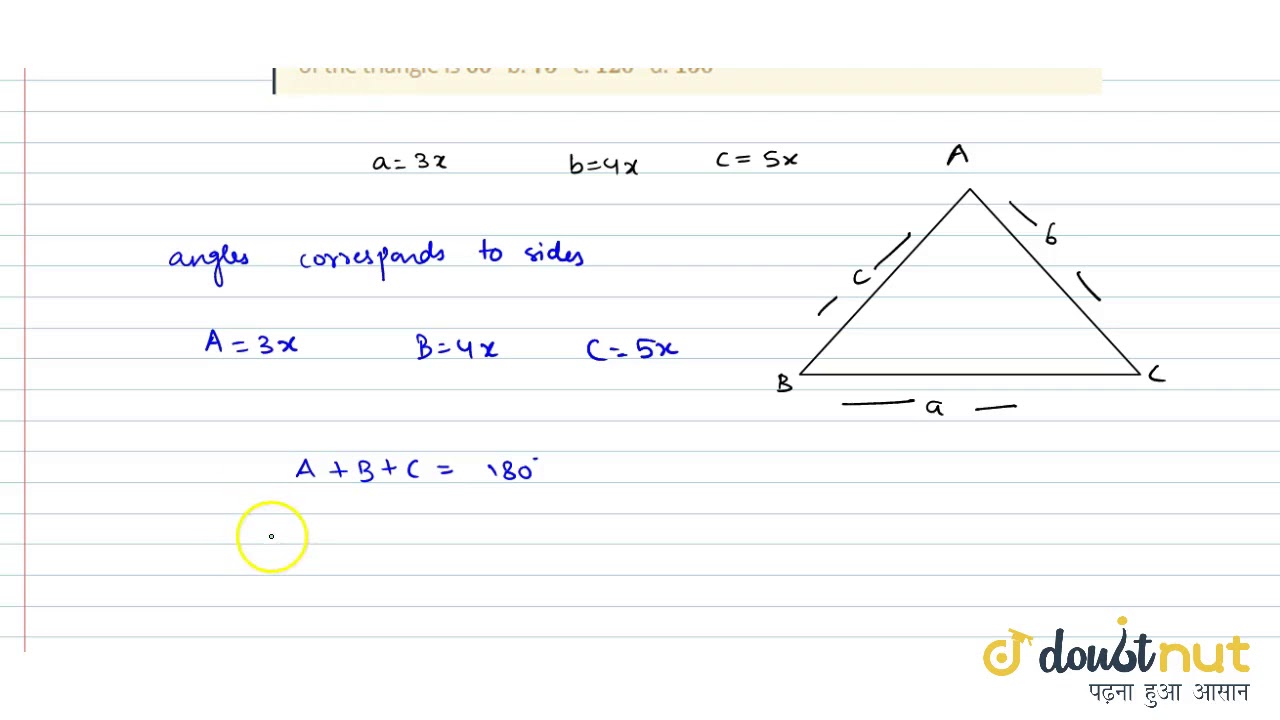 of the triangle is 60° b. 75° c. 120° d. 150°
a = 3x b = 4x c = 5x
A
angles corresponds to sides
b
c
A = 3x B = 4x C = 5x
B C
a
A + B + C = 180°
doubtnut
पढ़ना हुआ आसान